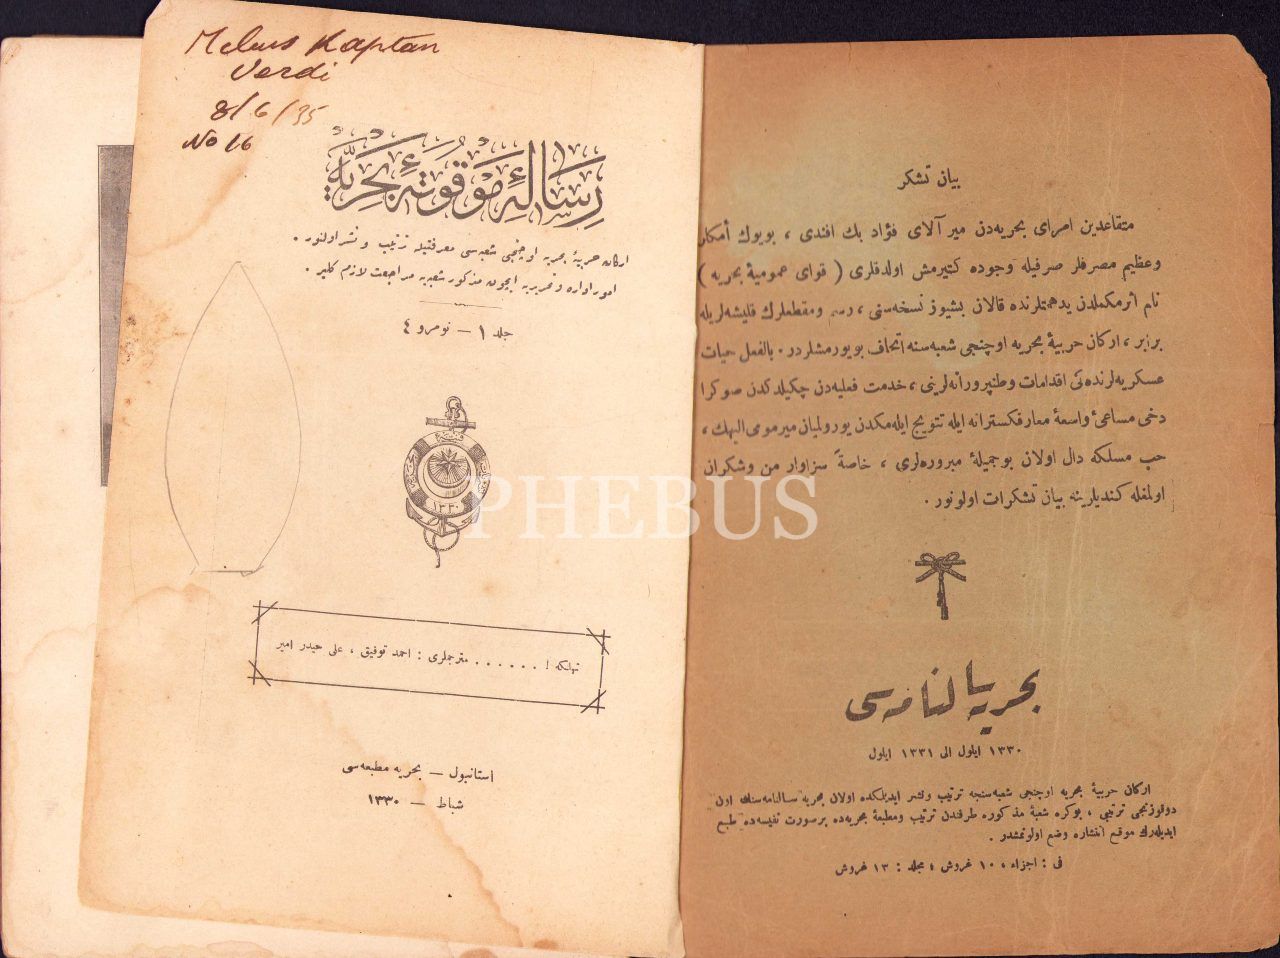 Mebus Kaptan
Verdi
8/6/35
No 16
رسالهٔ موقوتهٔ بحریه
اركان حربیهٔ بحریه اوچنجی شعبه‌سی معرفتیله ترتیب و نشر اولنور .
امور اداره و تحریریه ایچون مذكور شعبه‌یه مراجعت لازم كلیر .
جلد ١ — نومرو ٤
١٣٣٠
تهلكه ! . . . . . . مترجملری : احمد توفیق ، علی حیدر امیر
استانبول — بحریه مطبعه‌سی
شباط — ١٣٣٠
بیان تشكر
متقاعدین امرای بحریه‌دن میر آلای فؤاد بك افندی ، بویوك أمكلر
وعظیم مصرفلر صرفیله وجوده كتیرمش اولدقلری ( قوای عمومیهٔ بحریه )
نام اثر مكملدن یدهمتلرنده قالان بشیوز نسخه‌سنی ، رسم ومقطعلرك قلیشه‌لریله
برابر ، اركان حربیهٔ بحریه اوچنجی شعبه‌سنه اتحاف بویورمشلردر . بالفعل حیات
عسكریه‌لرنده‌كی اقدامات وطنپرورانه‌لرینی ، خدمت فعلیه‌دن چكیلدكدن صوكرا
دخی مساعیٔ واسعهٔ معارفكسترانه ایله تتویج ایله‌مكدن یورولمیان میر مومی الیهك ،
حب مسلكه دال اولان بو جمیلهٔ مبروره‌لری ، خاصةً سزاوار من وشكران
اولمغله كندیلرینه بیان تشكرات اولونور .
بحریه سالنامه‌سی
١٣٣٠ ایلول الی ١٣٣١ ایلول
اركان حربیهٔ بحریه اوچنجی شعبه‌سنجه ترتیب ونشر ایدیلكده اولان بحریه سالنامه‌سنك اون
دوقوزنجی ترتیبی ، بوكره شعبهٔ مذكوره طرفندن ترتیب ومطبعهٔ بحریه‌ده برصورت نفیسه‌ده طبع
ایدیله‌رك موقع انتشاره وضع اولونمشدر .
فی : اجزاء ، ١٠ غروش ؛ مجلد : ١٣ غروش
PHEBUS